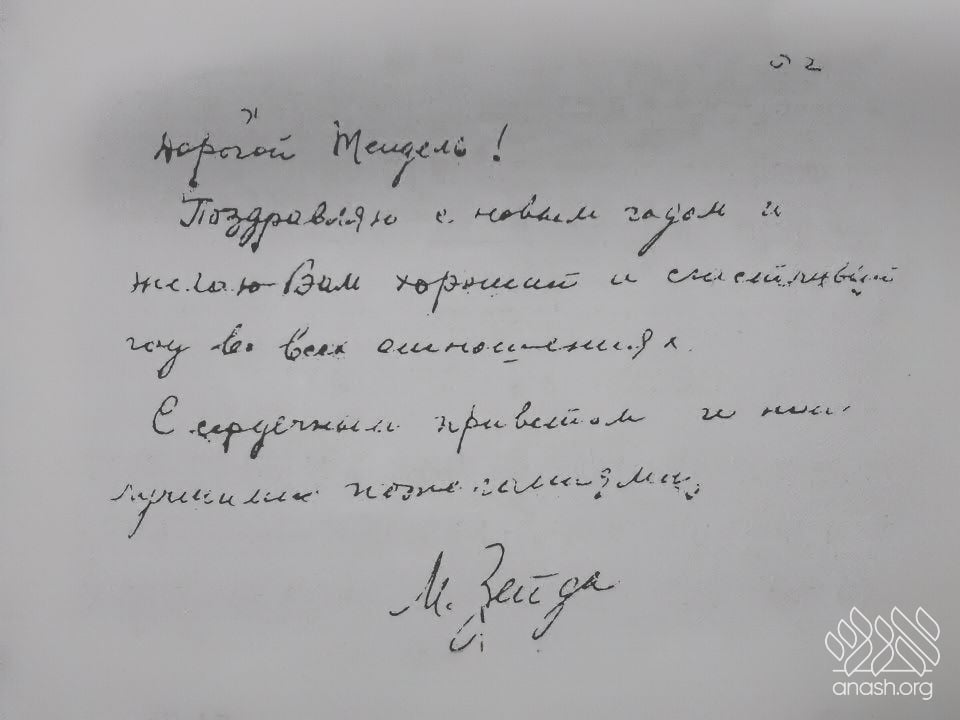 Дорогой Мендель!
Поздравляю с новым годом и
желаю Вам хороший и счастливый
год во всех отношениях.
С сердечным приветом и наи-
лучшими пожеланиями,
М. Зейда
anash.org